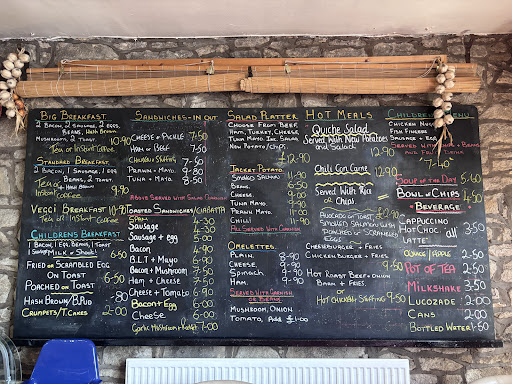 Big Breakfast
2 Bacon, 2 Sausage, 2 Eggs,
Beans, Hash Brown
Mushrooms, 2 Toast. 10-90
Tea or Instant Coffee
Standard Breakfast
1 Bacon, 1 Sausage, 1 Egg
Beans, 2 Toast
Tea or Instant Coffee 9-90
Veggi Breakfast 10-90
Tea or Instant Coffee
Childrens Breakfast
1 Bacon, 1 Egg, Beans, 1 Toast
Milk or 6-50
Fried or Scrambled Egg
on Toast 6-50
Poached on Toast 6-50
Hash Brown/B.Pud -80
Crumpets/T.Cakes 2-00
Sandwiches - in out
Cheese + Pickle 7-50
Ham or Beef 7-50
Tuna + Mayo
Prawn + Mayo
Above Served with Salad Garnish
Toasted Sandwiches/Ciabatta
Sausage 4-50
Sausage + Egg
Bacon
B.L.T + Mayo
Bacon + Mushroom
Ham + Cheese
Cheese + Tomato
Bacon + Egg 6-00
Cheese
Garlic Mushroom 7-00
Salad Platter
Choose from Beef
Ham, Turkey, Cheese
Tuna Mayo. Inc. Salad
New Potato/Chips
£12-90
Jacket Potato
Beans.
Cheese
Tuna Mayo
Prawn Mayo.
Chilli
All Served with Garnish
Omelettes.
Plain.
Cheese.
Spinach
Ham
Served with Garnish
or Beans
Mushroom, Onion
Tomato, Add £1-00
Hot Meals
Quiche Salad
Served with New Potatoes
and Salad 12-90
Chilli Con Carne 12-90
Served with Rice
or Chips
Avocado on Toast
Smoked Salmon with
Poached or Scrambled
Eggs
Cheeseburger + Fries
Chicken Burger + Fries
Hot Roast Beef + Onion
Barm + Fries.
or
Hot Chicken Stuffing 9-50
Childrens Menu
Chicken Nuggets
Fish Fingers
Sausage + Egg
Served with Beans
and Fries
7-40
Soup of the Day 6-40
Bowl of Chips 4-50
Beverage
Cappuccino
Hot Choc. all 3-50
Latte
Juice/Apple 2-50
Pot of Tea 2-50
Milkshake 3-50
Lucozade 2-00
Cans 2-00
Bottled Water 1-50